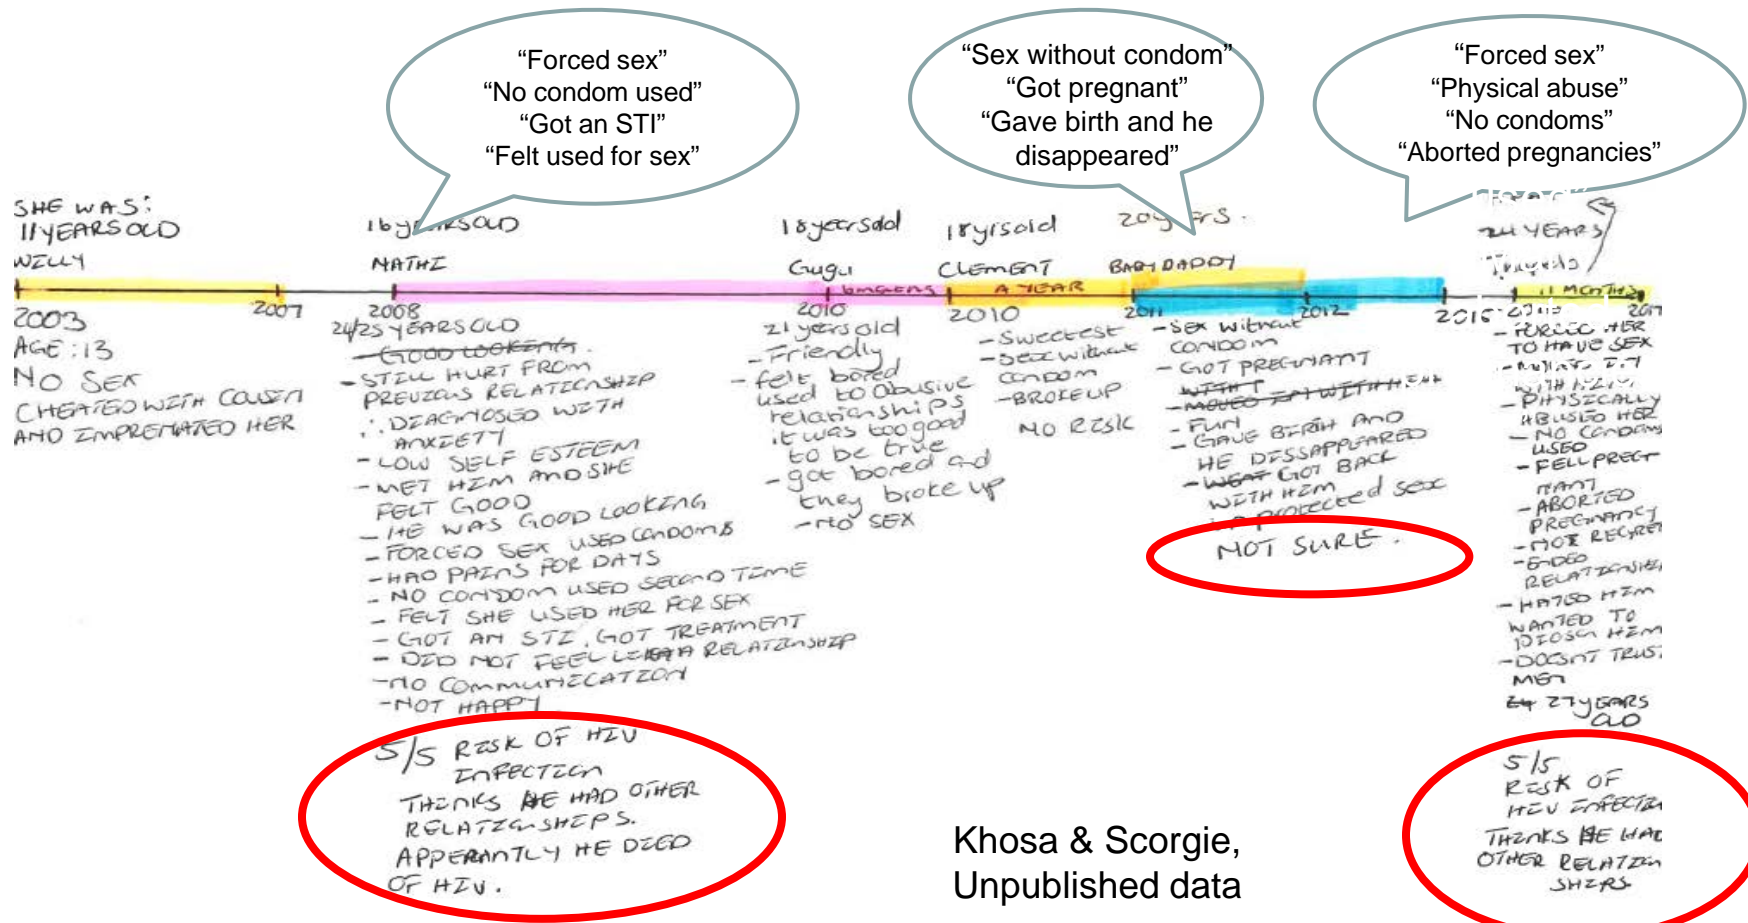 “Forced sex”
“No condom used”
“Got an STI”
“Felt used for sex”
“Sex without condom”
“Got pregnant”
“Gave birth and he
disappeared”
“Forced sex”
“Physical abuse”
“No condoms”
“Aborted pregnancies”
SHE WAS:
11 YEARS OLD
WILLY
2003
2007
AGE: 13
NO SEX
CHEATED WITH COUSIN
AND IMPREMATED HER
16 YEARS OLD
NATHI
2008
24/25 YEARS OLD
- GOOD LOOKING.
- STILL HURT FROM
PREVIOUS RELATIONSHIP
∴ DIAGNOSED WITH
ANXIETY
- LOW SELF ESTEEM
- MET HIM AND SHE
FELT GOOD
- HE WAS GOOD LOOKING
- FORCED SEX USED CONDOMS
- HAD PAINS FOR DAYS
- NO CONDOM USED SECOND TIME
- FELT SHE USED HER FOR SEX
- GOT AN STI, GOT TREATMENT
- DID NOT FEEL LIKE A RELATIONSHIP
- NO COMMUNICATION
- NOT HAPPY
5/5 RISK OF HIV
INFECTION
THINKS HE HAD OTHER
RELATIONSHIPS.
APPERANTLY HE DIED
OF HIV.
18 years old
Gugu
6 months
2010
21 years old
- Friendly
- felt bored
used to abusive
relationships
it was too good
to be true
- got bored and
they broke up
- NO SEX
18 yrs old
CLEMENT
A YEAR
2010
- Sweetest
- Sex without
condom
- BROKE UP
NO RISK
20 years.
BABY DADDY
2011
2012
- SEX without
condom
- GOT PREGNANT
- MOVED IN WITH HIM
- FUN
- GAVE BIRTH AND
HE DISSAPPEARED
- WENT GOT BACK
WITH HIM
protected sex
NOT SURE.
24 YEARS
11 MONTHS
2015
- FORCED HER
TO HAVE SEX
- PHYSICALLY
ABUSED HER
- NO CONDOMS
USED
- FELL PREG-
NANT
- ABORTED
PREGNANCY
- NOT REGRET
- ENDED
RELATIONSHIP
- HATED HIM
WANTED TO
HIM
- DOESNT TRUST
MEN
24 27 YEARS
OLD
5/5
RISK OF
HIV INFECTIO
THINKS HE HAD
OTHER RELATION
SHIPS
Khosa & Scorgie,
Unpublished data